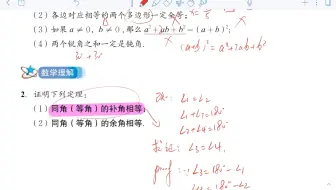 (2) 各边对应相等的两个多边形一定全等;
(3) 如果 a ≠ 0, b ≠ 0, 那么 a²+ab+b² = (a+b)²;
(4) 两个锐角之和一定是钝角.
(a+b)² = a²+2ab+b²
30° 30°
数学理解
2. 证明下列定理:
(1) 同角(等角)的补角相等;
(2) 同角(等角)的余角相等.
∠1=∠2
∠1+∠3=180°
∠2+∠4=180°
求证: ∠3=∠4.
proof: ∵ ∠3=180°-∠1
∠4=180°-∠2